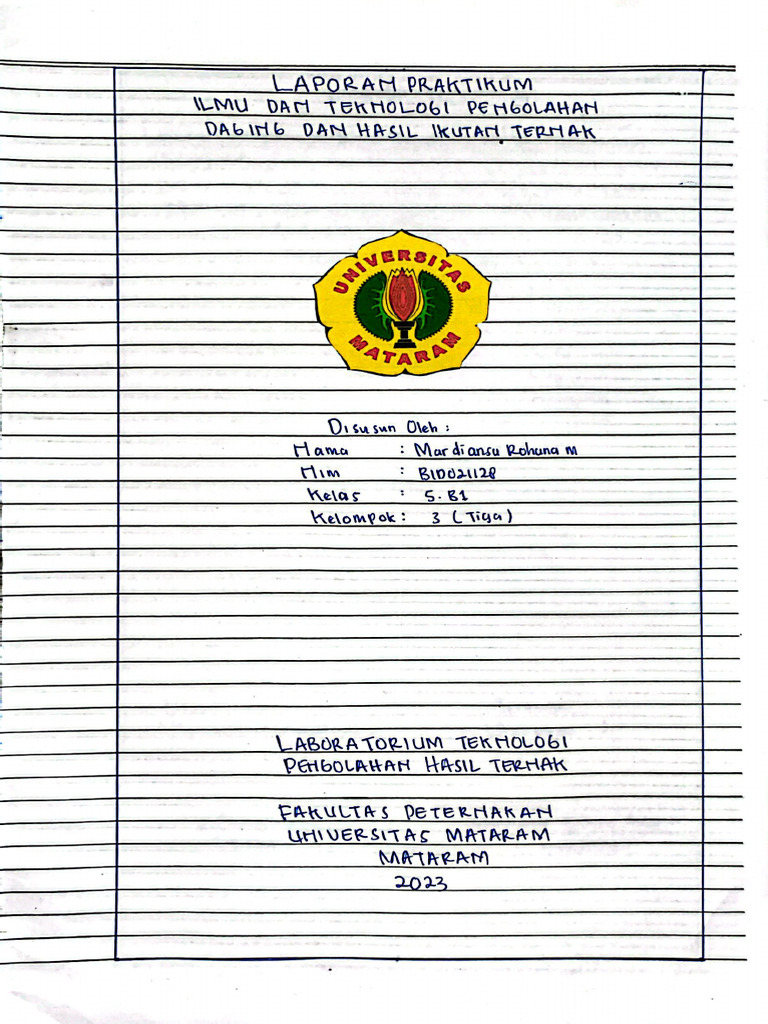 LAPORAN PRAKTIKUM
ILMU DAN TEKNOLOGI PENGOLAHAN
DAGING DAN HASIL IKUTAN TERNAK
UNIVERSITAS
MATARAM
Disusun Oleh :
Nama : Mardiansu Rohuna M
Nim : B1D021128
Kelas : 5.B1
Kelompok : 3 (Tiga)
LABORATORIUM TEKNOLOGI
PENGOLAHAN HASIL TERNAK
FAKULTAS PETERNAKAN
UNIVERSITAS MATARAM
MATARAM
2023